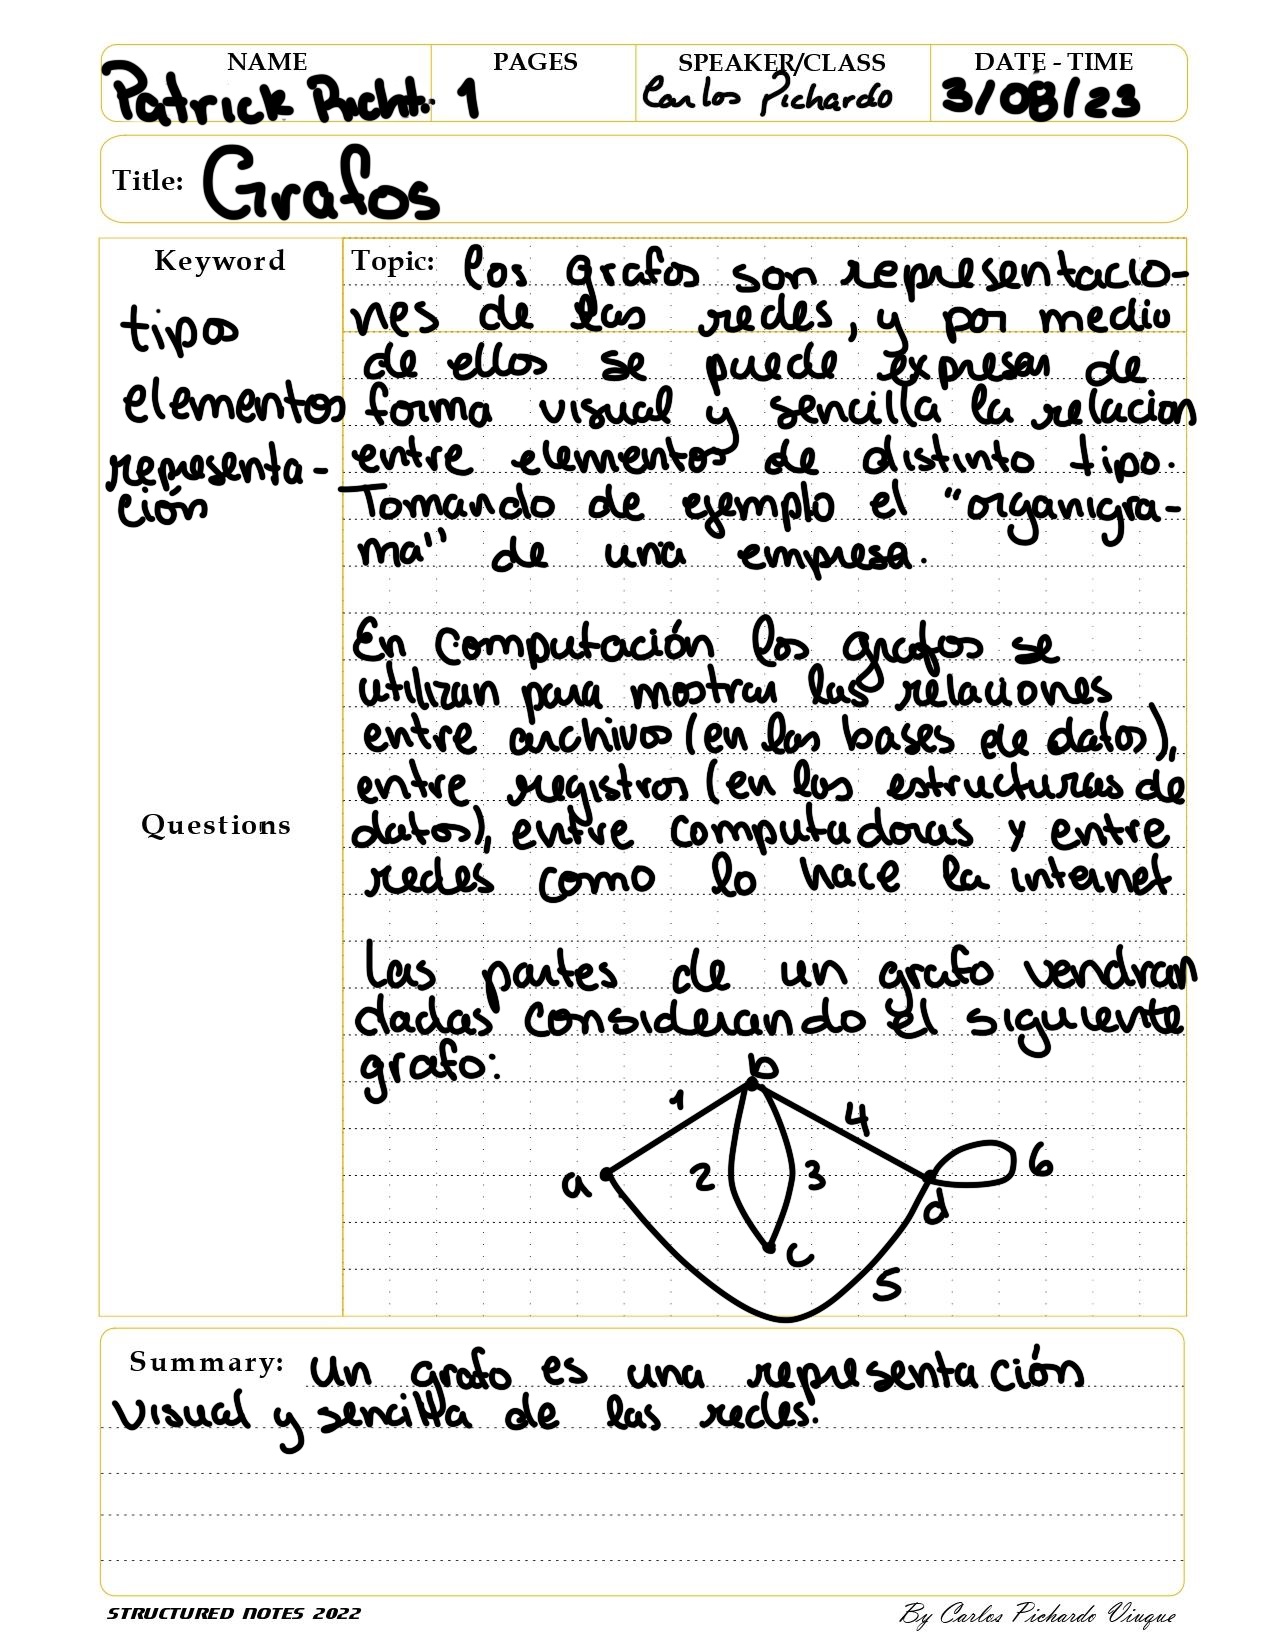 NAME PAGES SPEAKER/CLASS DATE - TIME
Patrick Richt. 1 Carlos Pichardo 3/08/23
Title: Grafos
Keyword
tipos
elementos
representa-
ción
Questions
Topic: los grafos son representacio-
nes de las redes, y por medio
de ellos se puede expresar de
forma visual y sencilla la relacion
entre elementos de distinto tipo.
Tomando de ejemplo el "organigra-
ma" de una empresa.
En computación los grafos se
utilizan para mostrar las relaciones
entre archivos (en las bases de datos),
entre registros (en las estructuras de
datos), entre computadoras y entre
redes como lo hace la internet
Las partes de un grafo vendran
dadas considerando el siguiente
grafo:
b
1 4
a 2 3 6
d
c
5
Summary: Un grafo es una representación
visual y sencilla de las redes.
STRUCTURED NOTES 2022 By Carlos Pichardo Viuque